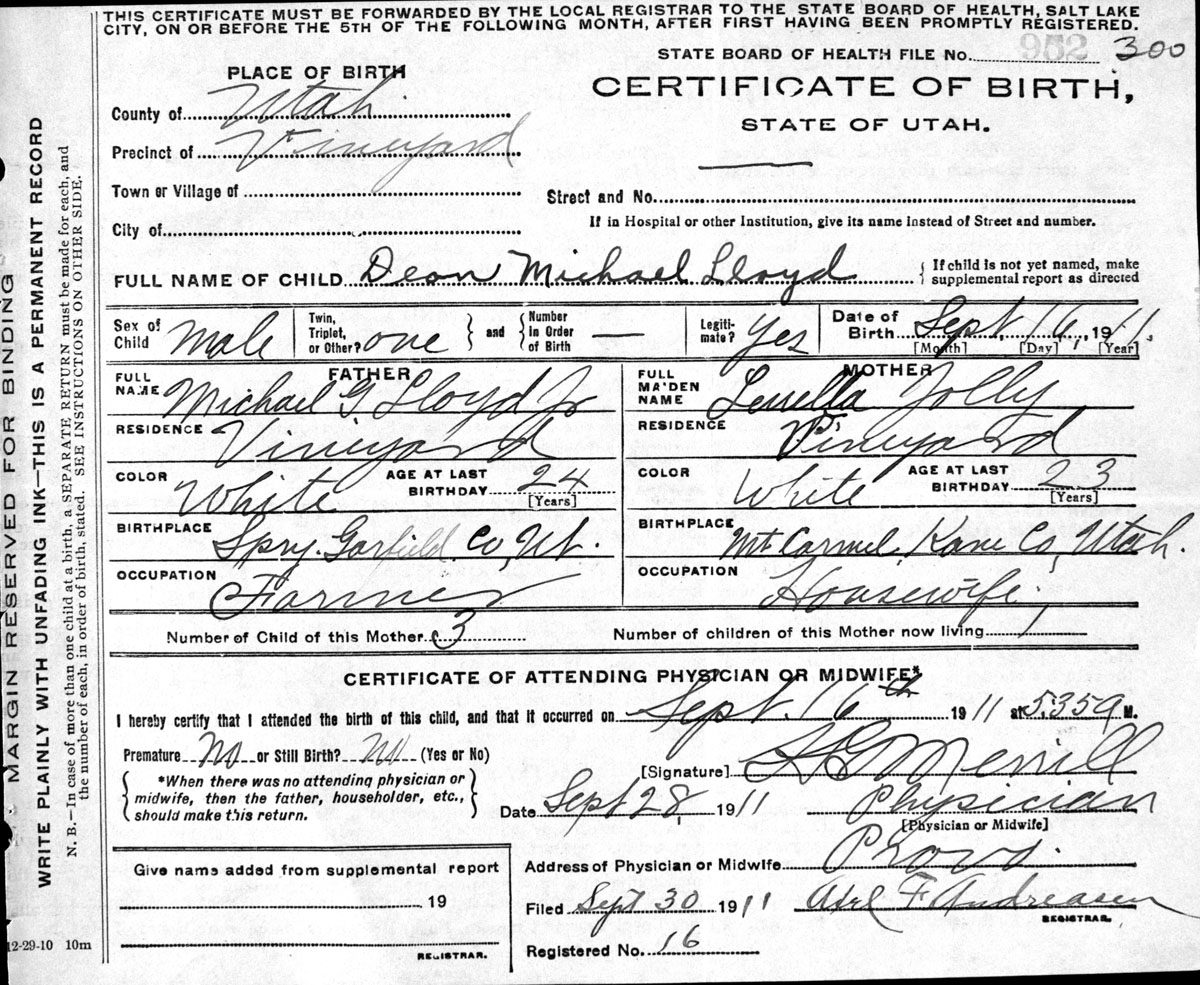 THIS CERTIFICATE MUST BE FORWARDED BY THE LOCAL REGISTRAR TO THE STATE BOARD OF HEALTH, SALT LAKE
CITY, ON OR BEFORE THE 5TH OF THE FOLLOWING MONTH, AFTER FIRST HAVING BEEN PROMPTLY REGISTERED.
STATE BOARD OF HEALTH FILE No. 952 300
PLACE OF BIRTH
CERTIFICATE OF BIRTH,
STATE OF UTAH.
County of Utah
Precinct of Vineyard
Town or Village of
Street and No.
City of
If in Hospital or other Institution, give its name instead of Street and number.
FULL NAME OF CHILD Dean Michael Lloyd
{ If child is not yet named, make
supplemental report as directed
Sex of Child Male Twin, Triplet, or Other? one } and { Number in Order of Birth — Legiti-mate? Yes Date of Birth Sept. 16, 1911.
[Month] [Day] [Year]
FATHER MOTHER
FULL NAME Michael G. Lloyd Jr FULL MAIDEN NAME Jolly
RESIDENCE Vineyard RESIDENCE Vineyard
COLOR White AGE AT LAST BIRTHDAY 24 [Years] COLOR White AGE AT LAST BIRTHDAY 23 [Years]
BIRTHPLACE Spry. Garfield Co, Ut. BIRTHPLACE Mt Carmel, Kane Co, Utah.
OCCUPATION Farmer OCCUPATION Housewife
Number of Child of this Mother 3 Number of children of this Mother now living 1
CERTIFICATE OF ATTENDING PHYSICIAN OR MIDWIFE*
I hereby certify that I attended the birth of this child, and that it occurred on Sept. 16th 1911 at 5.35 a M.
Premature No or Still Birth? No (Yes or No)
{ *When there was no attending physician or
midwife, then the father, householder, etc.,
should make this return. }
[Signature] Merrill
Date Sept 28, 1911 Physician
[Physician or Midwife]
Address of Physician or Midwife Provo.
Give name added from supplemental report
19
REGISTRAR.
Filed Sept 30 1911 Axel F Andreasen
REGISTRAR.
Registered No. 16
12-29-10 10m
MARGIN RESERVED FOR BINDING
WRITE PLAINLY WITH UNFADING INK—THIS IS A PERMANENT RECORD
N. B.—In case of more than one child at a birth, a SEPARATE RETURN must be made for each, and
the number of each, in order of birth, stated. SEE INSTRUCTIONS ON OTHER SIDE.